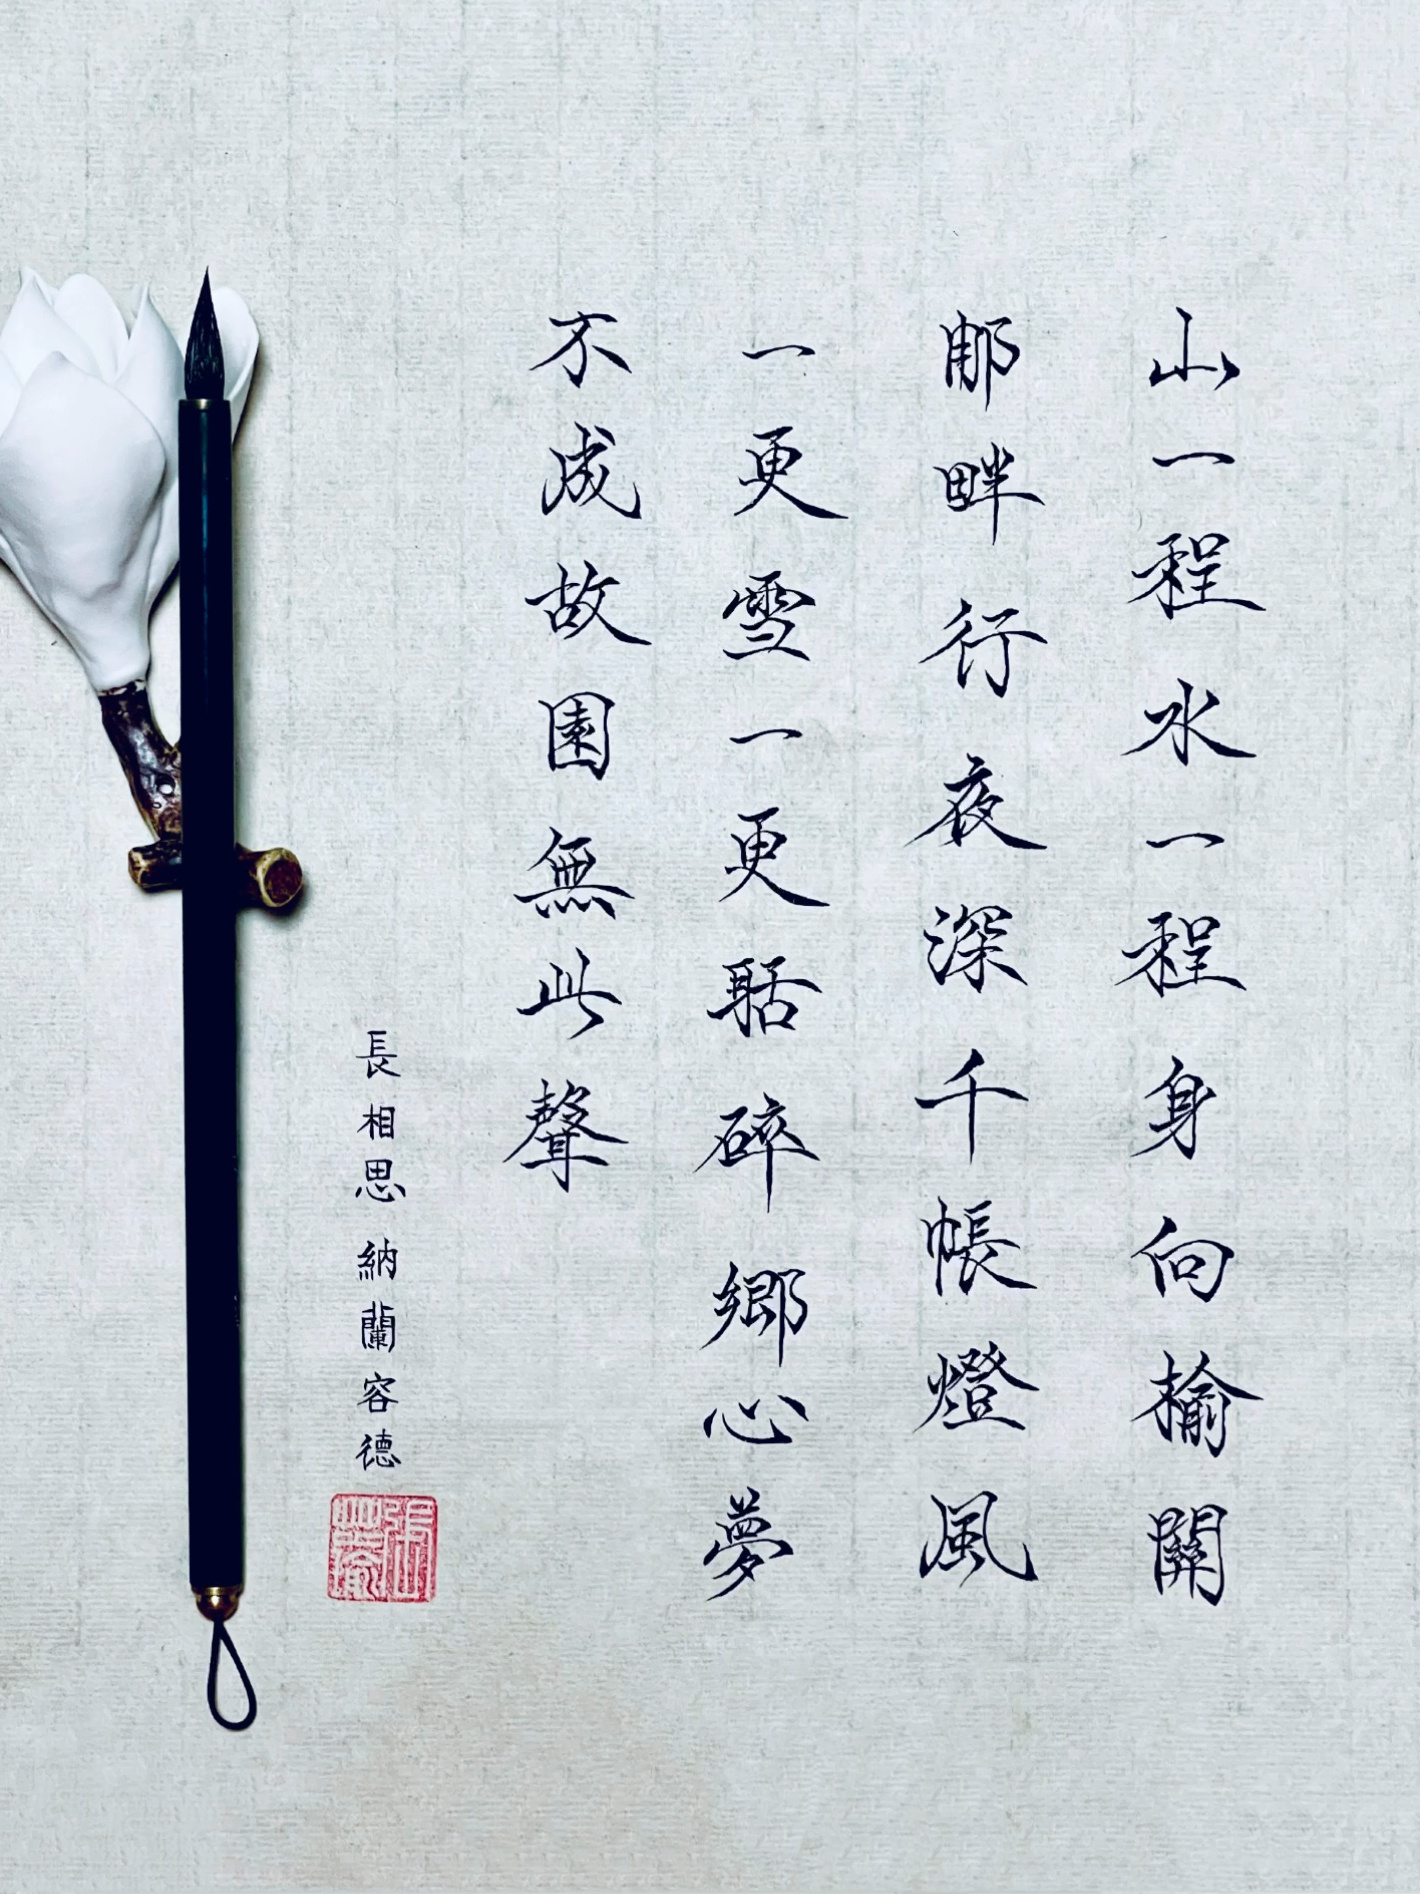 山一程水一程身向榆關
那畔行夜深千帳燈風
一更雪一更聒碎鄉心夢
不成故園無此聲
長相思 納蘭容德